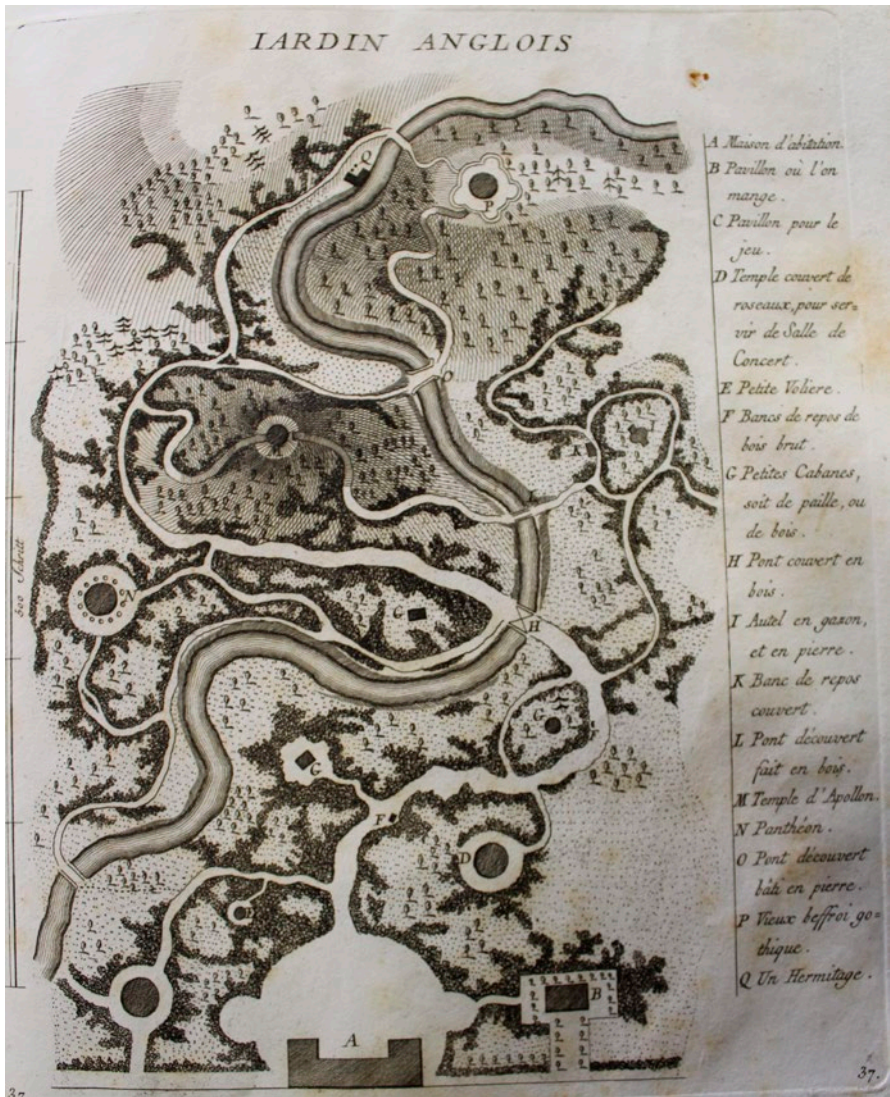 IARDIN ANGLOIS
A Maison d'abitation.
B Pavillon où l'on
mange.
C Pavillon pour le
jeu.
D Temple couvert de
roseaux, pour ser=
vir de Salle de
Concert.
E Petite Voliere.
F Bancs de repos de
bois brut.
G Petites Cabanes,
soit de paille, ou
de bois.
H Pont couvert en
bois.
I Autel en gazon,
et en pierre.
K Banc de repos
couvert.
L Pont découvert
fait en bois.
M Temple d'Apollon.
N Panthéon.
O Pont découvert
bâti en pierre.
P Vieux beffroi go=
thique.
Q Un Hermitage.
Q
P
O
I
K
L
M
N
G
H
G
G
F
D
E
B
A
600 Schritt
37.
37